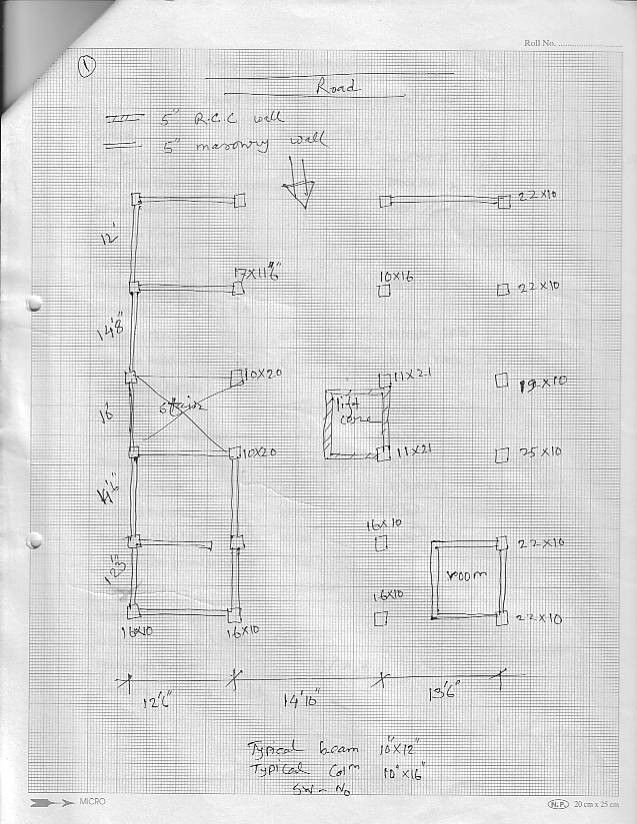 Roll No.
1
Road
5" R.C.C wall
5" masonry wall
22X10
12'
17X11'6"
10X16
22X10
14'8
10X20
11X21
19X10
stair
lift
core
16'
10X20
11X21
25X10
16X10
22X10
room
12'3"
16X10
22X10
16X10
16X10
14'10"
13'6"
Typical beam 10"X12"
Typical Colm 10"X16"
SW - No
MICRO
N.P. 20 cm x 25 cm